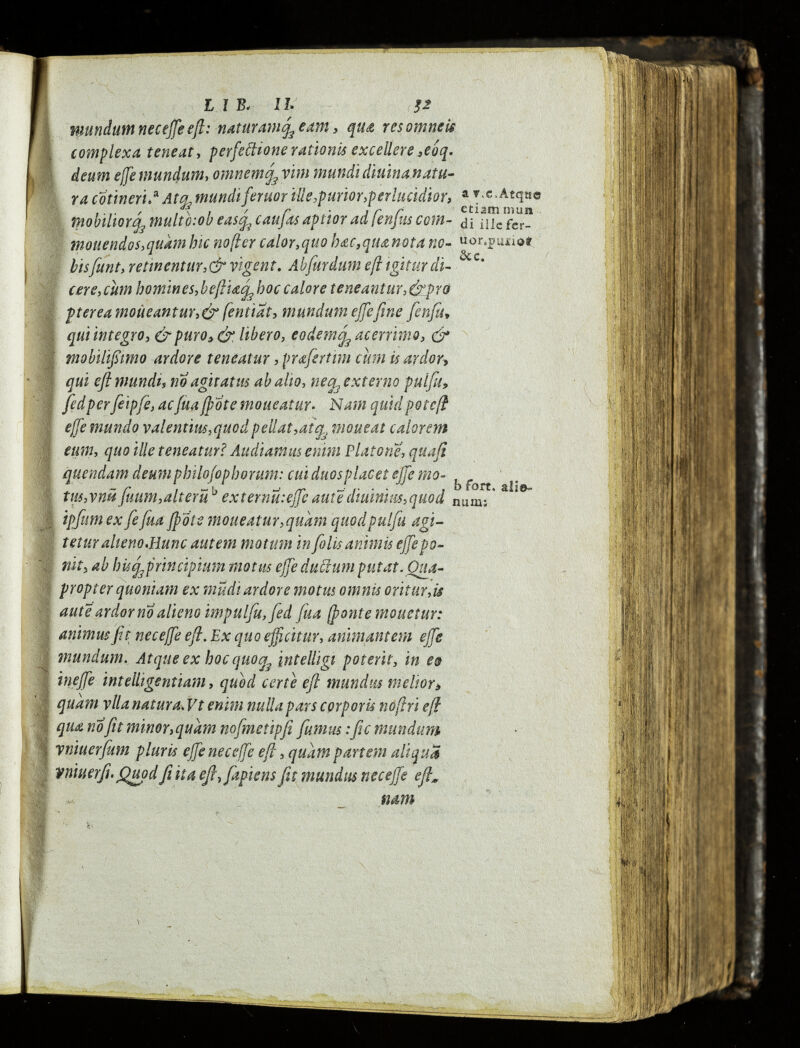 LIB. II. 52
mundum necesse est: naturamq́ue eam, quæ res omneis
complexa teneat, perfectione rationis excellere, eóq.
deum esse mundum, omnemq́ue vim mundi diuina natu-
ra cōtineri.ᵃ Atq́ue mundi feruor ille, purior, perlucidior,
mobiliorq́ue multò: ob easq́ue causas aptior ad sensus com-
mouendos, quàm hic noster calor, quo hæc, quæ nota no-
bis sunt, retinentur, & vigent. Absurdum est igitur di-
cere, cùm homines, bestiæq́ue hoc calore teneantur, & pro
pterea moueantur, & sentiāt, mundum esse sine sensu,
qui integro, & puro, & libero, eodemq́ue acerrimo, &
mobilißimo ardore teneatur, præsertim cùm is ardor,
qui est mundi, nō agitatus ab alio, neq́ue externo pulsu,
sed per seipse, ac sua spōte moueatur. Nam quid potest
esse mundo valentius, quod pellat, atq́ue moueat calorem
eum, quo ille teneatur? Audiamus enim Platonē, quasi
quendam deum philosophorum: cui duos placet esse mo-
tus, vnū suum, alterūᵇ externū: esse autē diuinius, quod
ipsum ex se sua spōte moueatur, quàm quod pulsu agi-
tetur alieno. Hunc autem motum in solis animis esse po-
nit, ab hisq́ue principium motus esse ductum putat. Qua-
propter quoniam ex mūdi ardore motus omnis oritur, is
autē ardor nō alieno impulsu, sed sua sponte mouetur:
animus sit necesse est. Ex quo efficitur, animantem esse
mundum. Atque ex hoc quoq́ue intelligi poterit, in eo
inesse intelligentiam, quòd certè est mundus melior,
quàm vlla natura. Vt enim nulla pars corporis nostri est
quæ nō sit minor, quàm nosmetipsi sumus: sic mundum
vniuersum pluris esse necesse est, quàm partem aliquā
vniuersi. Quod si ita est, sapiens sit mundus necesse est.
nam
a v.c. Atque
etiam mun
di ille fer-
uor, purior
&c.
b fort. alie-
num: